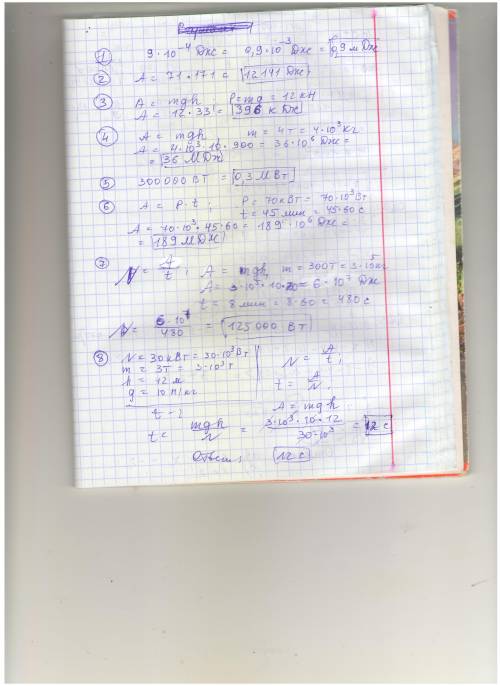 ① 9·10⁻⁴ Дж = 0,9·10⁻³ Дж = 0,9 мДж
② A = 71·171 = 12141 Дж
③ A = mgh P=mg = 12 кН
A = 12·33 = 396 кДж
④ A = mgh m = 4т = 4·10³ кг
A = 4·10³·10·900 = 36·10⁶ Дж =
= 36 МДж
⑤ 300000 Вт = 0,3 МВт
⑥ A = P·t; P = 70кВт = 70·10³ Вт
t = 45 мин = 45·60 с
A = 70·10³·45·60 = 189·10⁶ Дж =
= 189 МДж
⑦ N = A/t; A = mgh, m = 300т = 3·10⁵ кг
A = 3·10⁵·10·20 = 6·10⁷ Дж
t = 8 мин = 8·60 = 480 с
N = 6·10⁷/480 = 125000 Вт
⑧ N = 30кВт = 30·10³ Вт N = A/t;
m = 3т = 3·10³ т
h = 12 м t = A/N.
g = 10 Н/кг
t - ? A = mgh
t = mgh/N = 3·10³·10·12/30·10³ = 12 с
Ответ: 12 с